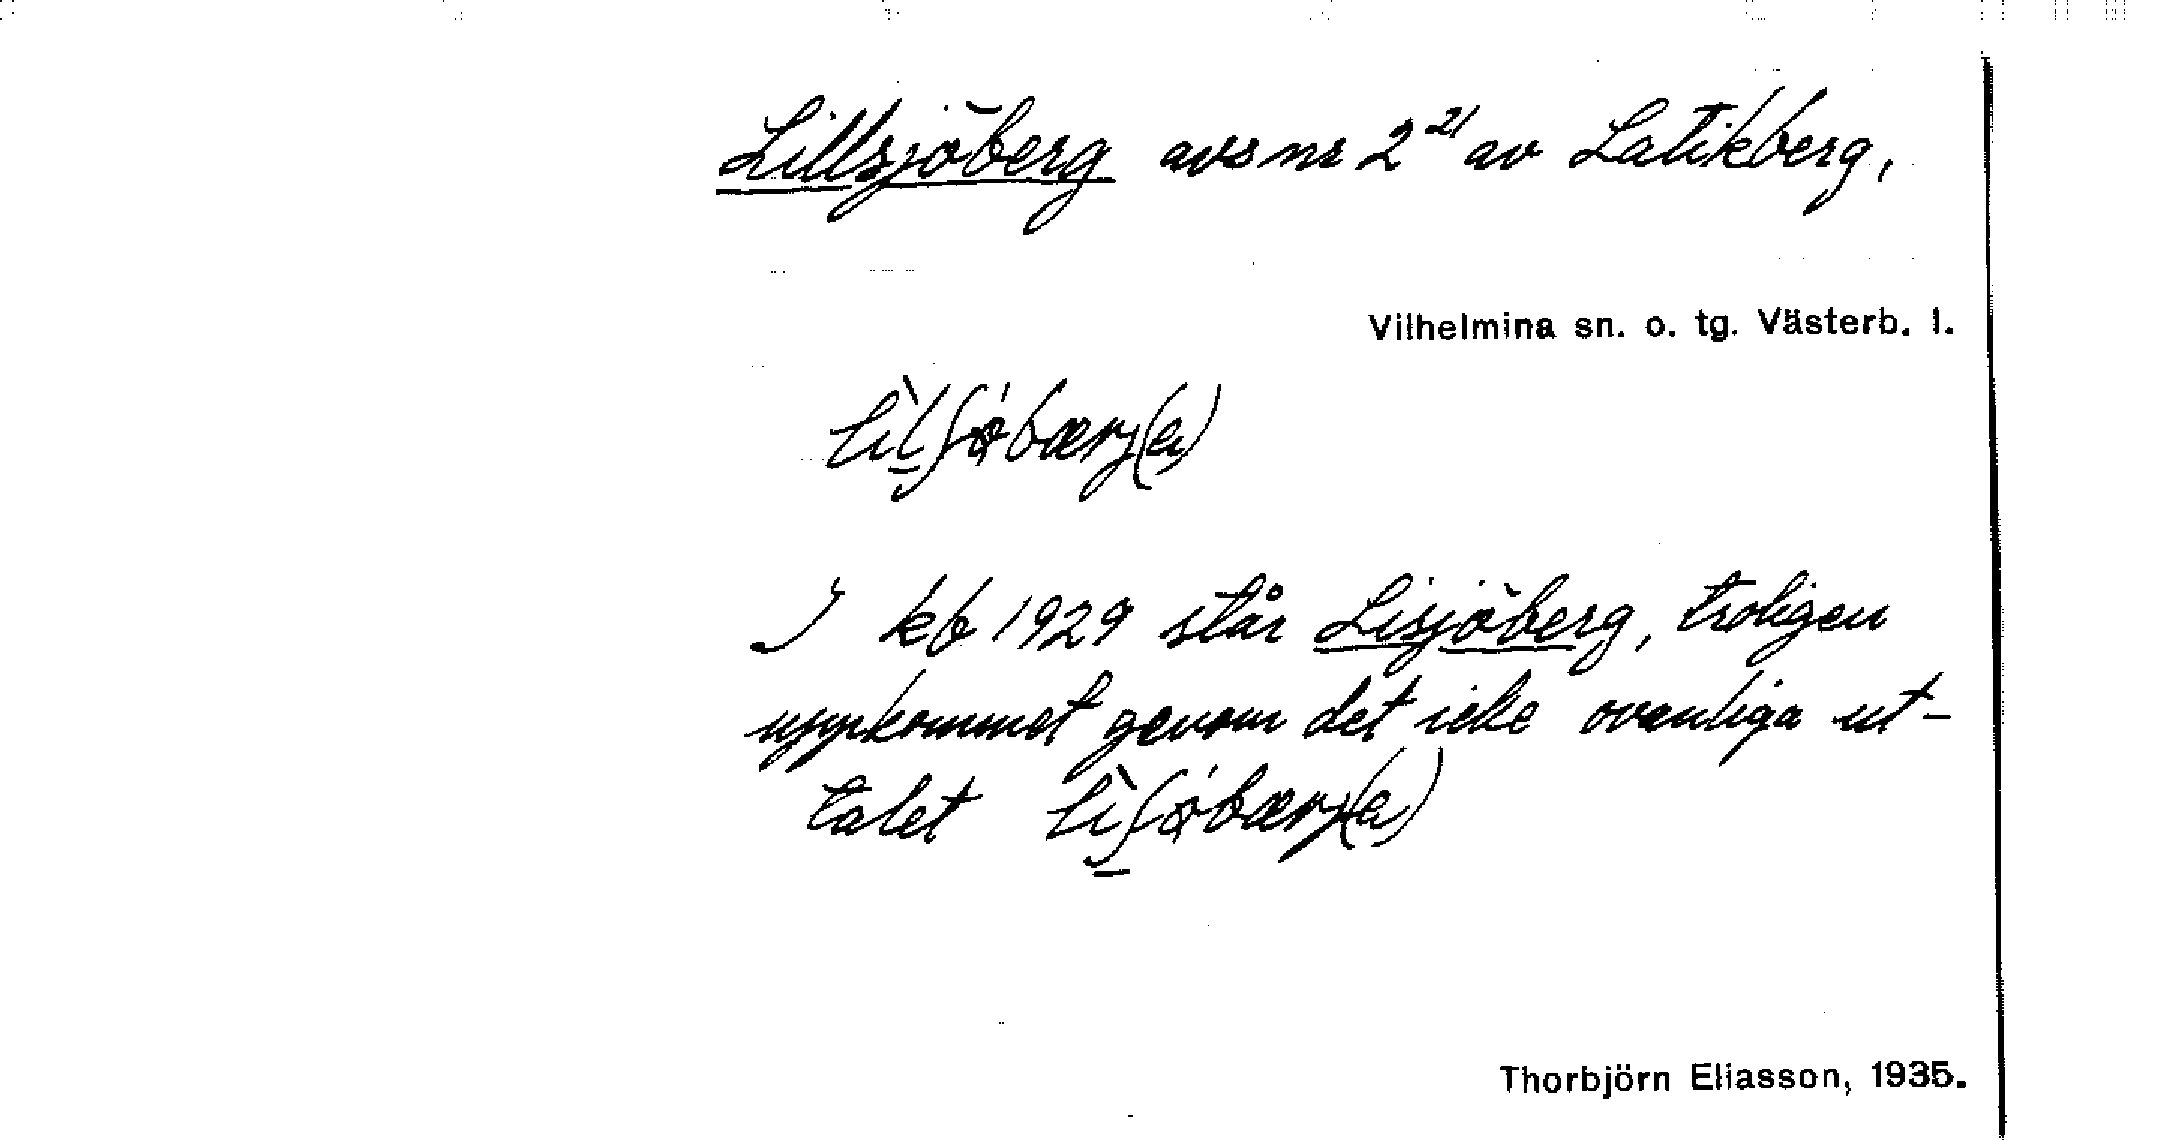 Lillsjöberg avs nr 2²¹ av Latikberg,
Vilhelmina sn. o. tg. Västerb. l.
lìlʃǿbærj(a)
I kb 1929 står Lisjöberg, troligen
uppkommet genom det icke ovanliga ut-
talet lìʃǿbærj(a)
Thorbjörn Eliasson, 1935.